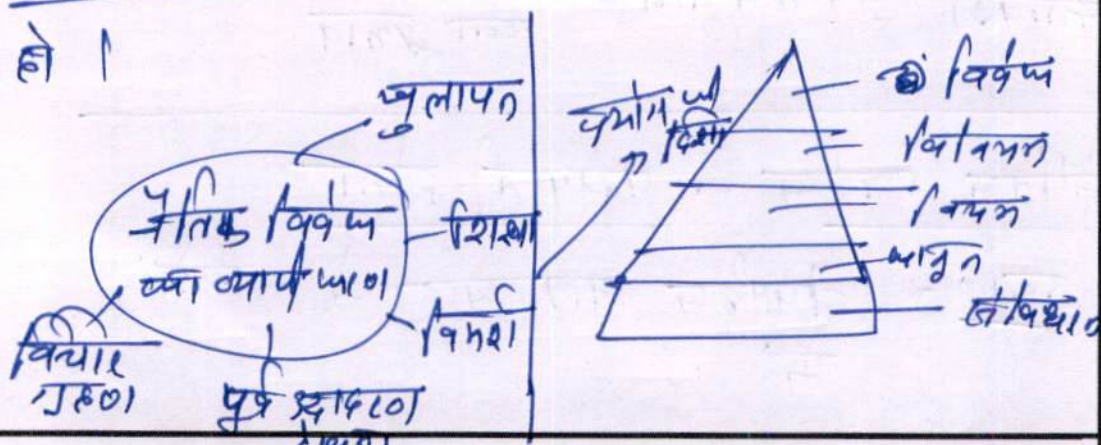 हो ।
खुलापन
नैतिक विवेक
का व्यापकीकरण
शिक्षा
विमर्श
विचार
ग्रहण
पूर्व उदाहरण
प्रयोग की
दिशा
विवेक
विनियमन
नियम
कानून
संविधान